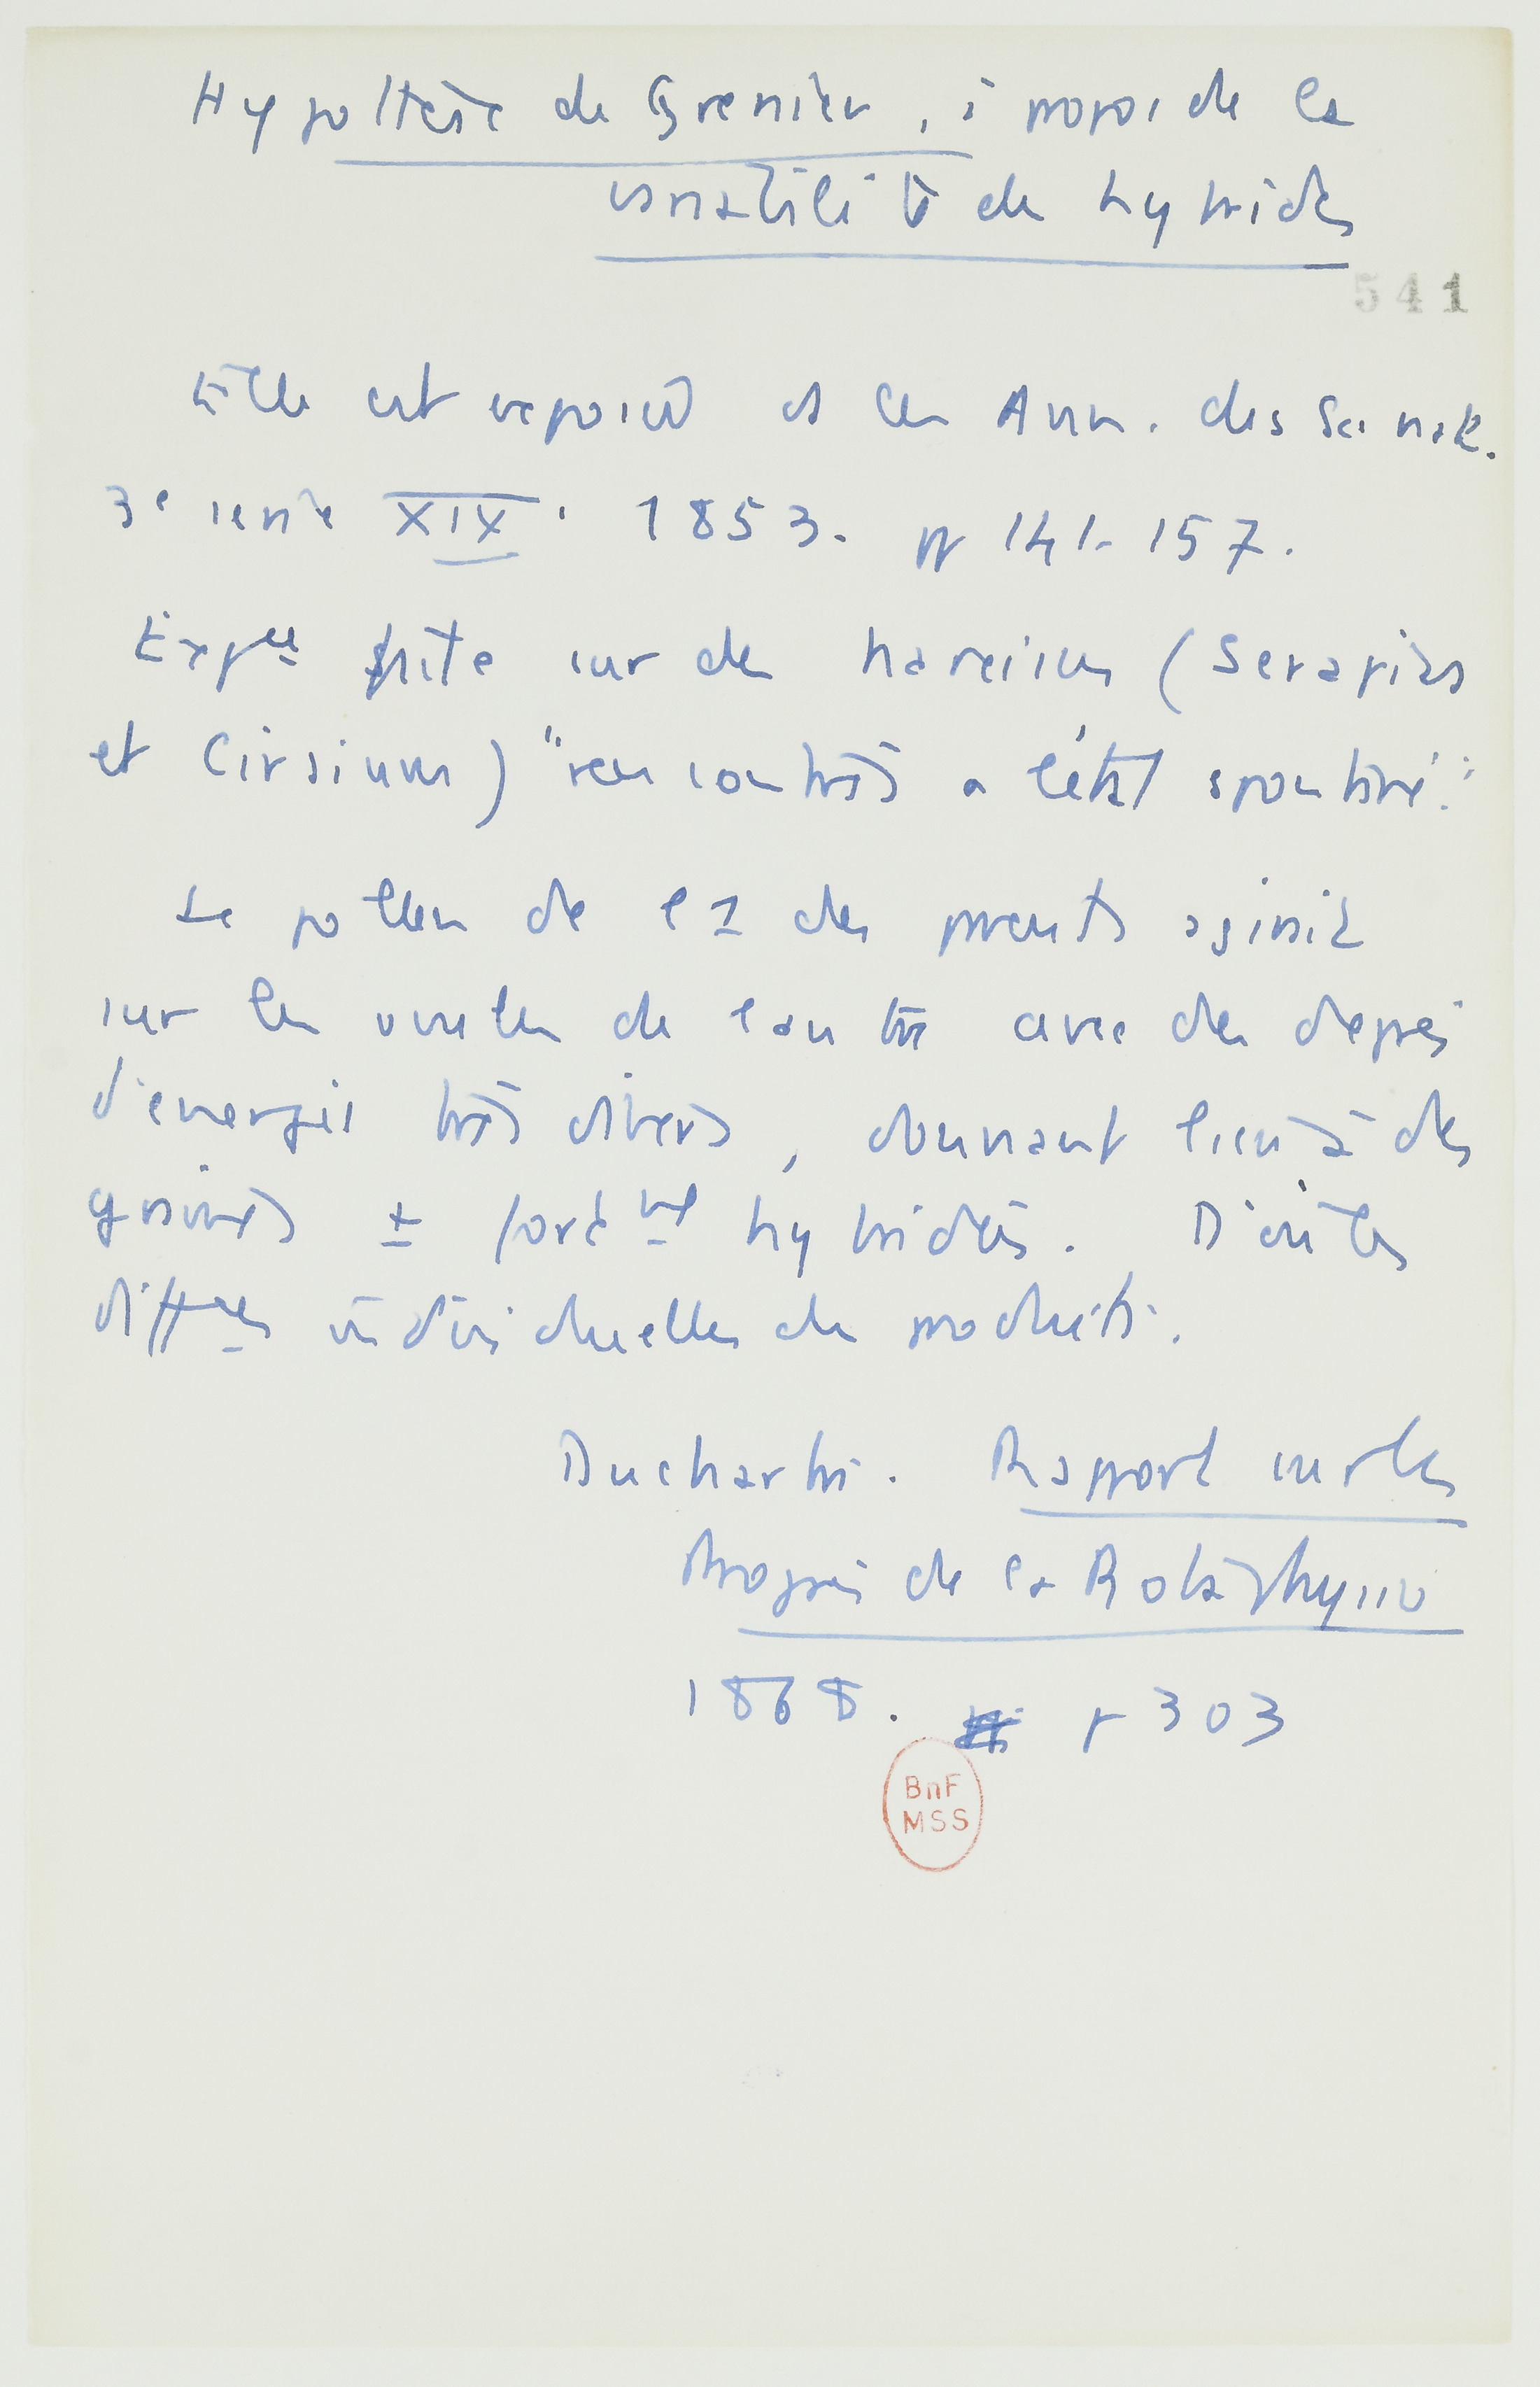 Hypothèse de Grenier, à propos de la
variabilité des hybrides
541
Elle est exposée ds les Ann. des Sci nat.
3e série XIX. 1853. pp 141-157.
Expce faite sur des narcisses (Serapias
et Cirsium) "rencontrés à l'état spontané".
Le pollen de l'1 des parents agirait
sur les ovules de l'autre avec des degrés
d'énergie très divers, donnant lieu à des
graines ± fortmt hybridées. D'où les
diffces individuelles des produits.
Duchartre. Rapport sur les
Progrès de la Bota physio
1868. p 303
BnF
MSS